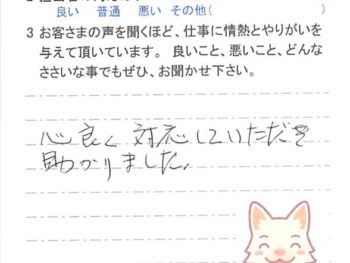 良い 普通 悪い その他( )
3 お客さまの声を聞くほど、仕事に情熱とやりがいを
与えて頂いています。 良いこと、悪いこと、どんな
ささいな事でもぜひ、お聞かせ下さい。
心良く 対応していただき
助かりました。